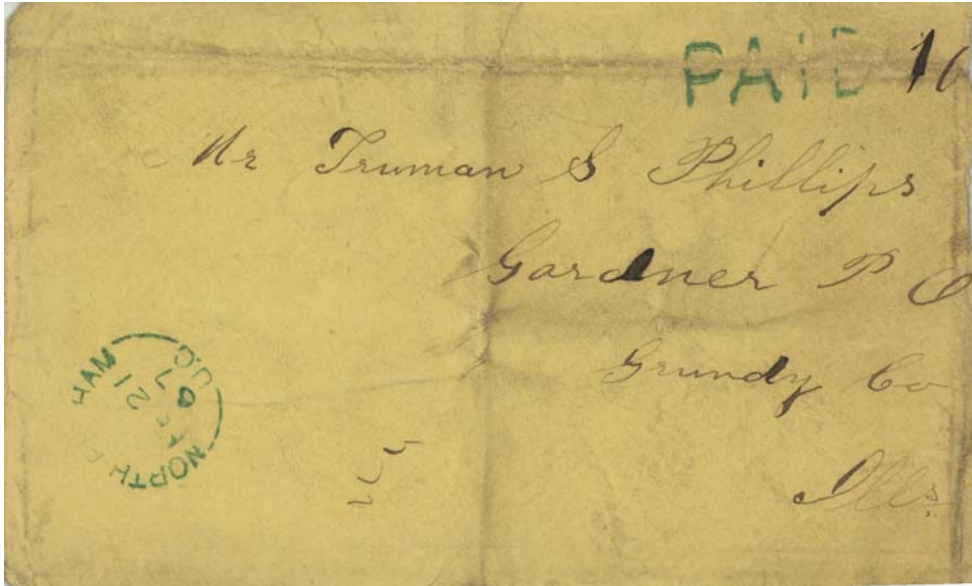 PAID 10
Mr Truman S Phillips
Gardner P O
Grundy Co
Ills.
NORTH